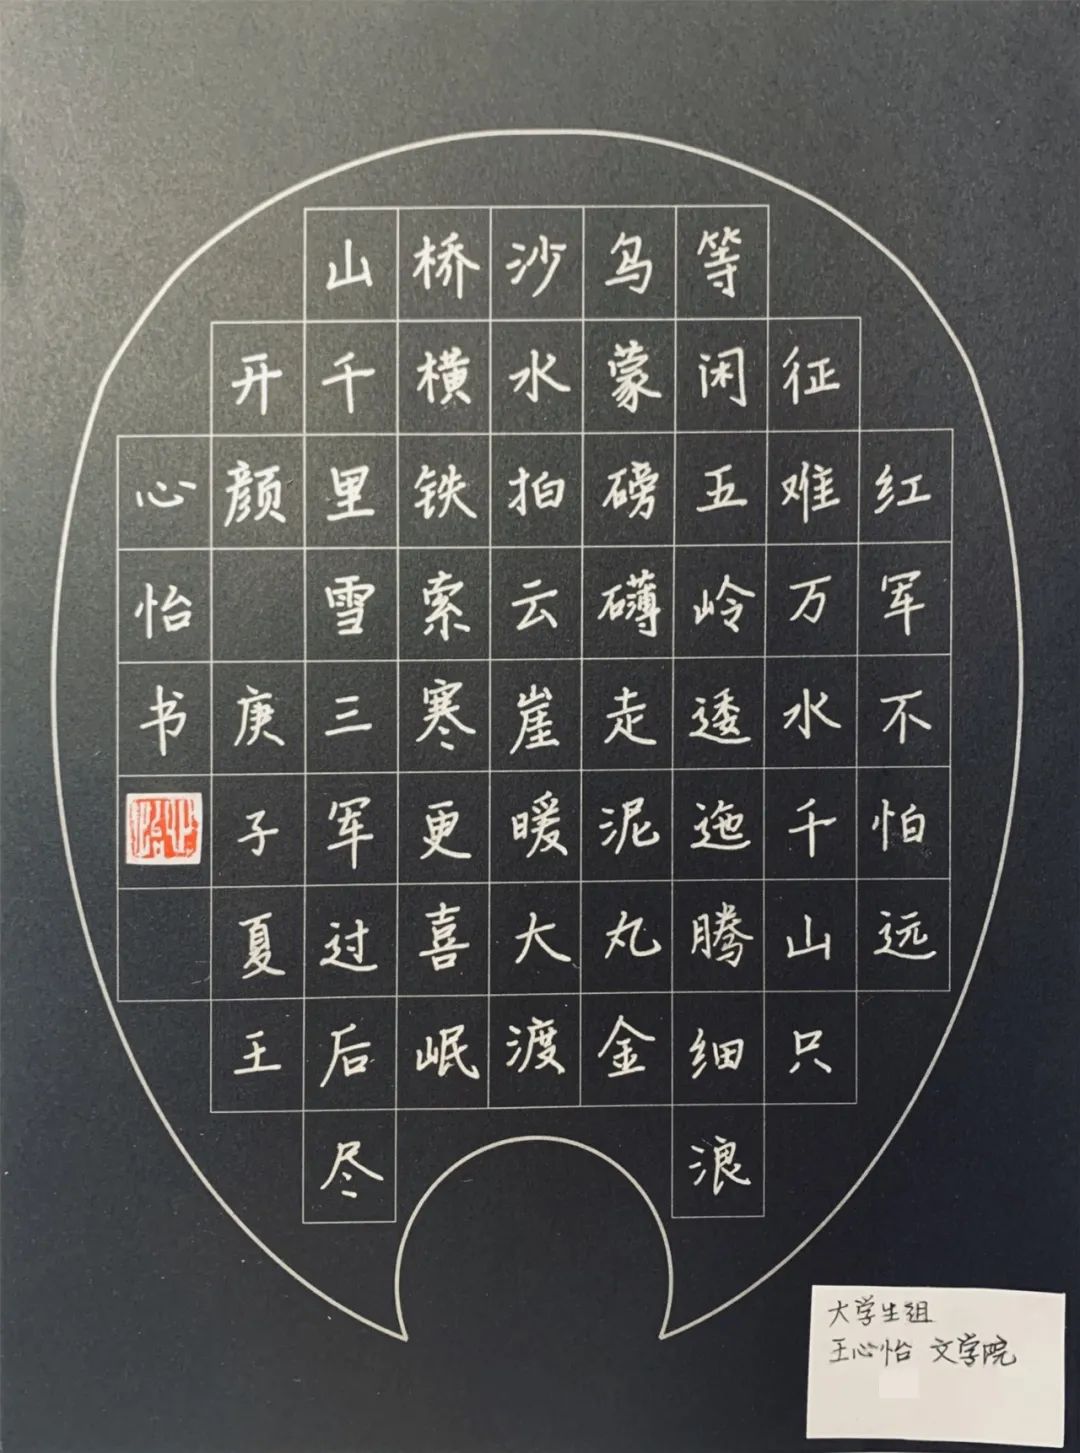 红军不怕远
征难万水千山只
等闲五岭逶迤腾细浪
乌蒙磅礴走泥丸金
沙水拍云崖暖大渡
桥横铁索寒更喜岷
山千里雪三军过后尽
开颜 庚子夏王
心怡书
心怡
大学生组
王心怡 文学院